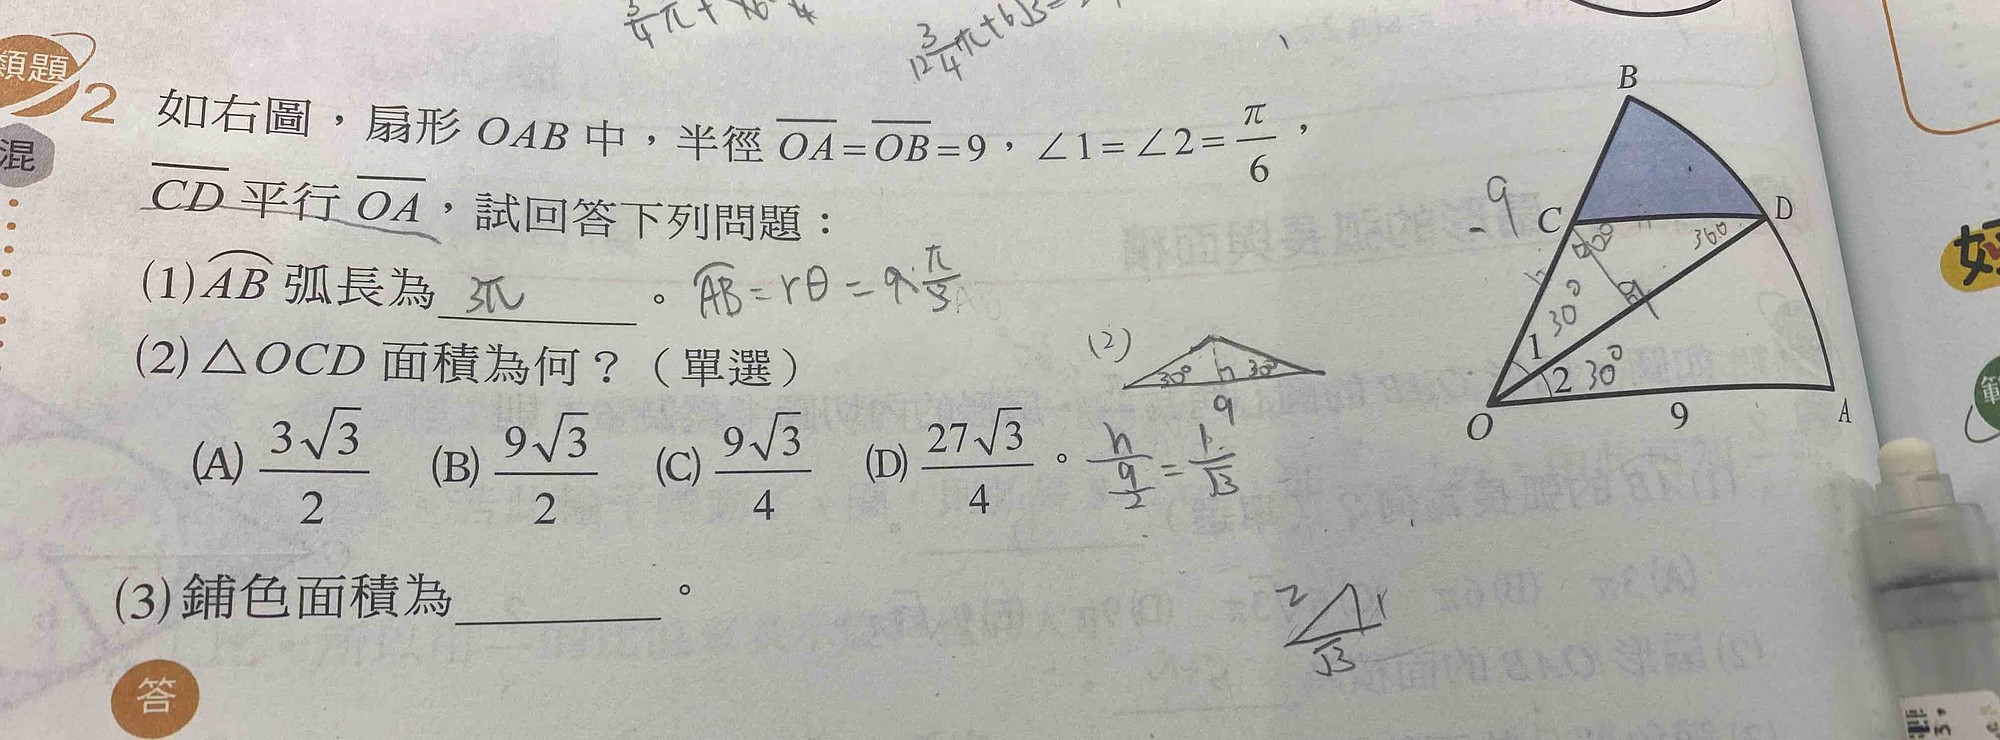 3/4 π +
12 3/4 π + 6√3 =
類題 2 如右圖，扇形 OAB 中，半徑 OA = OB = 9，∠1 = ∠2 = π/6，
混
CD 平行 OA，試回答下列問題：
(1) AB 弧長為 3π 。 AB = rθ = 9 · π/3
(2) △OCD 面積為何？（單選）
(A) 3√3/2 (B) 9√3/2 (C) 9√3/4 (D) 27√3/4 。
(2)
30° h 30°
9
h/(9/2) = 1/√3
(3) 鋪色面積為 。
2 1
√3
答
B
C
D
120°
30°
30°
1
2
O
9
A
-9
好
範